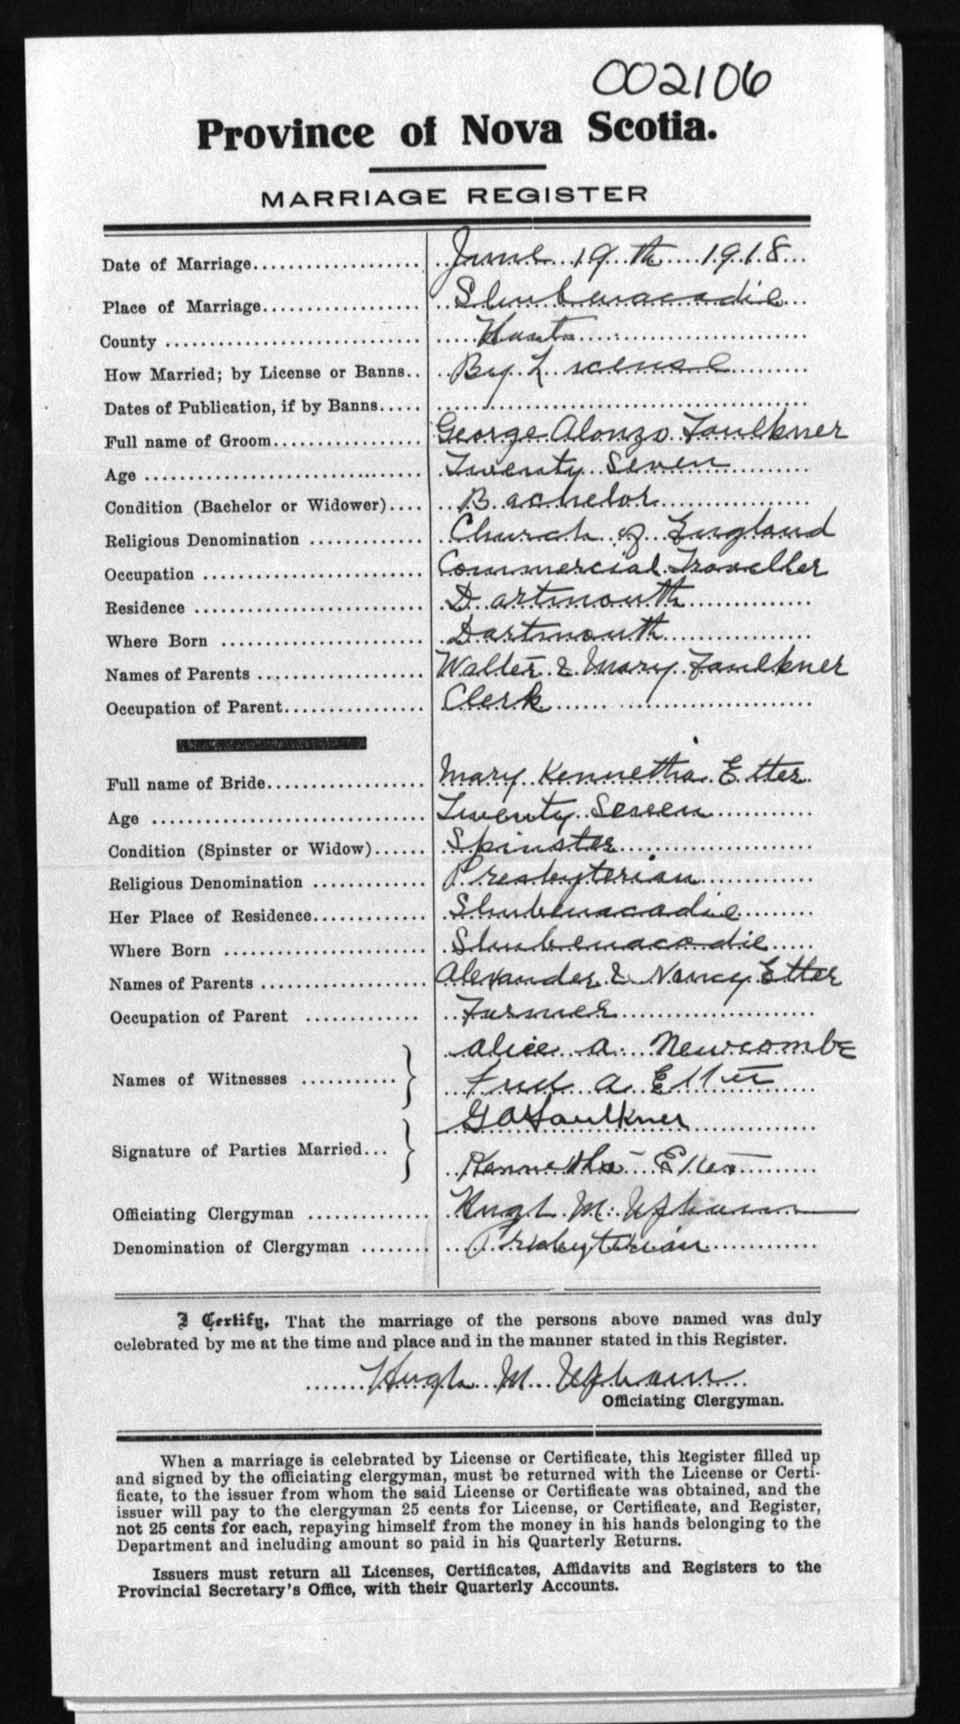 002106
Province of Nova Scotia.
MARRIAGE REGISTER
Date of Marriage.................... June 19th 1918
Place of Marriage................... Shubenacadie
County .............................. Hants
How Married; by License or Banns.. By License
Dates of Publication, if by Banns.....
Full name of Groom................. George Alonzo Faulkner
Age ................................. Twenty Seven
Condition (Bachelor or Widower).... Bachelor
Religious Denomination ............. Church of England
Occupation .......................... Commercial Traveller
Residence ........................... Dartmouth
Where Born ......................... Dartmouth
Names of Parents ................... Walter & Mary Faulkner
Occupation of Parent................ Clerk
Full name of Bride................... Mary Kennetha Etter
Age ................................. Twenty Seven
Condition (Spinster or Widow)...... Spinster
Religious Denomination ............. Presbyterian
Her Place of Residence............. Shubenacadie
Where Born ........................ Shubenacadie
Names of Parents ................... Alexander & Nancy Etter
Occupation of Parent ............. Farmer
Alice A. Newcombe
Names of Witnesses ........... } Fred A Etter
G A Faulkner
Signature of Parties Married... } Kennetha Etter
Officiating Clergyman .............. Hugh M. Upham
Denomination of Clergyman ........ Presbyterian
I Certify, That the marriage of the persons above named was duly
celebrated by me at the time and place and in the manner stated in this Register.
Hugh M. Upham
Officiating Clergyman.
When a marriage is celebrated by License or Certificate, this Register filled up
and signed by the officiating clergyman, must be returned with the License or Certi-
ficate, to the issuer from whom the said License or Certificate was obtained, and the
issuer will pay to the clergyman 25 cents for License, or Certificate, and Register,
not 25 cents for each, repaying himself from the money in his hands belonging to the
Department and including amount so paid in his Quarterly Returns.
Issuers must return all Licenses, Certificates, Affidavits and Registers to the
Provincial Secretary's Office, with their Quarterly Accounts.